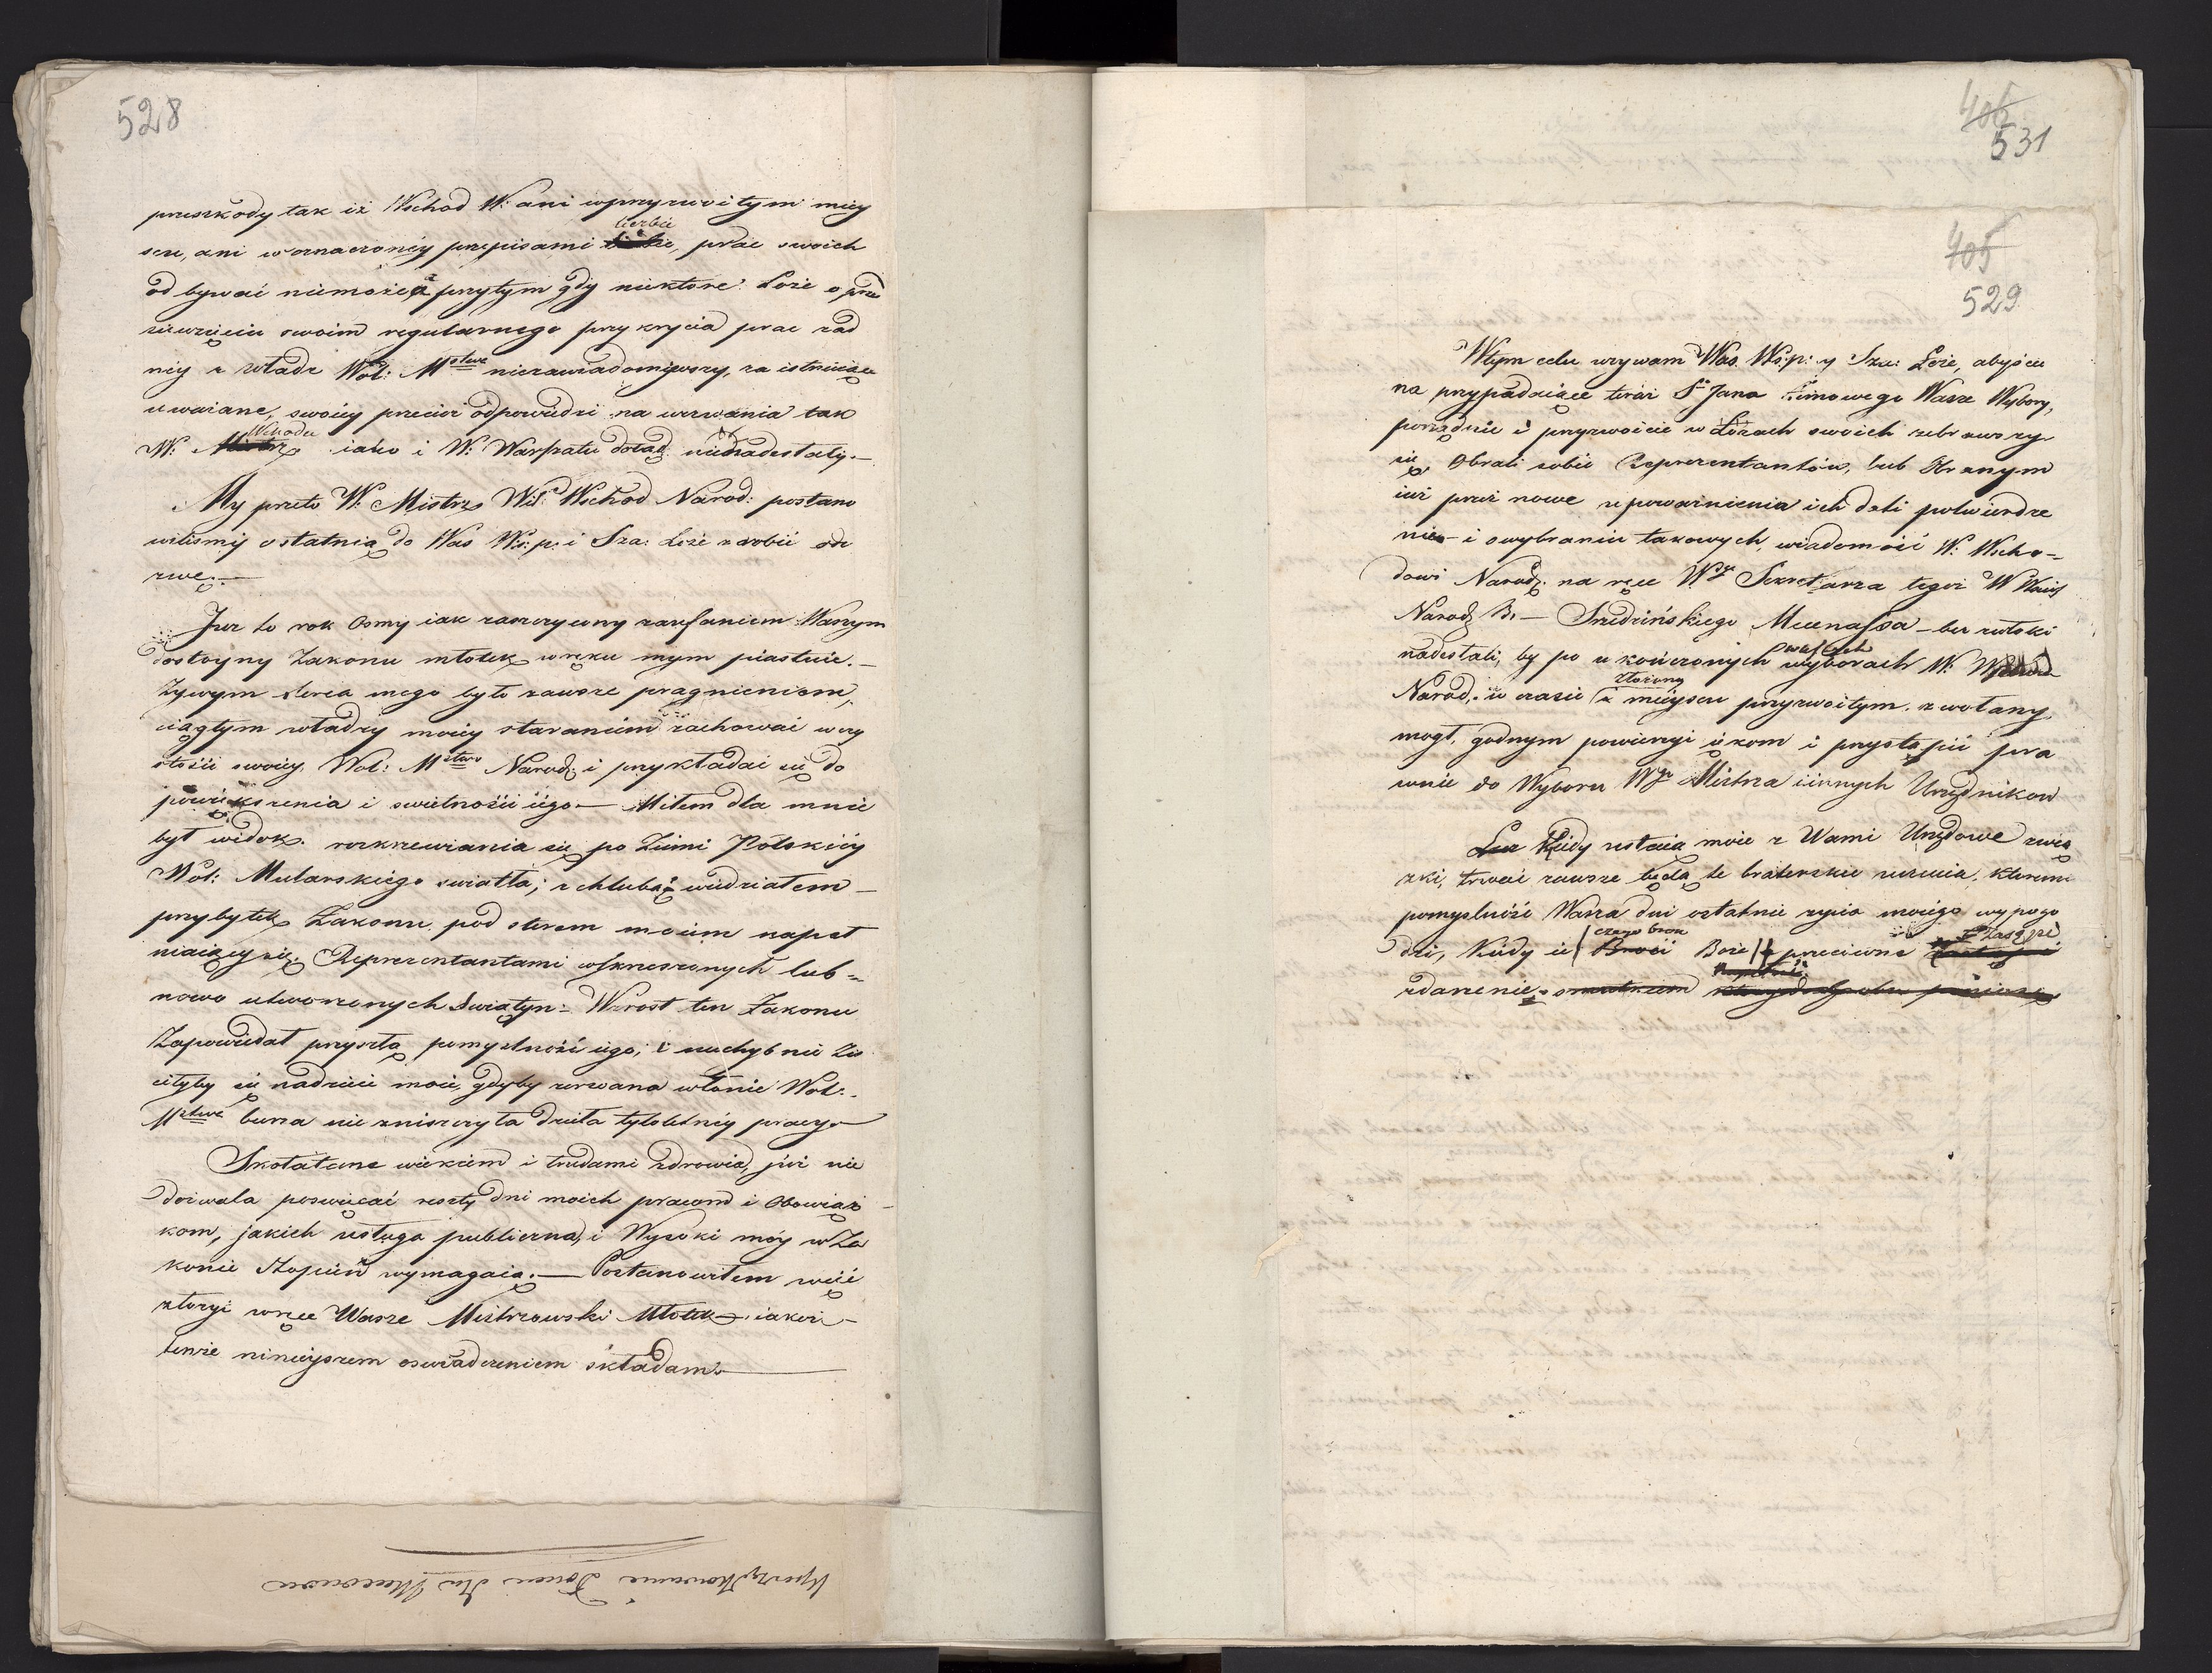 528
przeszkody tak iż Wschod W: ani wprzyzwoitym miey
scu, ani w oznaczonéy przepisami liczbie, prac swoich
od bywać niemoże a przytym gdy niektóre Loże o prze
sięwzięciu swoim regularnego przykrycia prac żad
néy z władz Wol: Mstwa niezawiadomiwszy, za istnieiące
uważane, swoiéy przecież odpowiedzi na wezwania tak
W: Wschodu iako i W: Warsztatu dotąd nienadesłały.—
My przeto W: Mistrz Wiel: Wschod Narod: postano
wiliśmy ostatnią do Was Ws: p: i Sza: Loże zrobić ode
zwę.—
Już to rok Osmy iak zaszczycony zaufaniem Waszym
dostoyny Zakonu młotek wręku mym piastuię.—
Żywym serca mego było zawsze pragnieniem,
ciągłym władzy moiéy staraniem zachować wczy
stości swoiéy Wol: Mstwo Narod: i przykładać się do
powiększenia i swietności iego— Miłem dla mnie
był widok rozkrzewiania się po Ziemi Polskiéy
Wol: Mularskiego swiatła; z chlubą widziałem—
przybytek Zakonu pod sterem moiém napeł
niaiący się Reprezentantami wskrzeszonych lub=
nowo utworzonych Swiątyn: Wzrost ten Zakonu
Zapowiedał przyszłą pomyslność iego; i niechybnie Zis
ciłyby się nadzieie moie, gdyby zerwana włonie Wol:
Mstwa burza nie zniszczyła dzieła tyloletniéy pracy.
Skołatane wiekiem i trudami zdrowie, już nie
dozwala poswięcać reszty dni moich pracom i Obowiąz
kom, jakich usługa publiczna, i Wysoki móy w Za
konie Stopień wymagaią.— Postanowiłem więc
złożyć wręce Wasze Mistrzowski Młotek, iakoż—
tenże ninieyszem oswiadczeniem składam.
Uporządkowanie
406
531
405
529
Wtym celu wzywam Was Ws: p: y Sza: Loże, abyście
na przypadaiące teraz S° Jana Zimowego Wasze Wybory,
porządnie i przyzwoicie w Lożach swoich zebrawszy
się Obrali sobie Reprezentantów, lub Obranym
iuż przez nowe upoważnienia ich dali potwierdze
nie— i owybraniu takowych, wiadomość W: Wscho-
dowi Narod: na ręce Wgo Sekretarza tegoż W Wsch
Narod: Br:— Mecenassa— bez zwłoki
nadesłali, by po ukończonych waszych wyborach W: Wschod
Narod: w czasie złożony i mieyscu przyzwoitym zwołany,
mogł, godnym powierzyć iékom i przystąpić pra
wnie do Wyboru Wgo Mistrza iinnych Urzędnikow
Lecz Kiedy ustaią moie z Wami Urzędowe zwią
zki, trwać zawsze będą te braterskie uczucia, któremi
pomyslność Wasza dni ostatnie życia moiego wypogo
dzi, Kiedy ie czego broń Broń Boże przeciwne
zdarzenie smutkiem